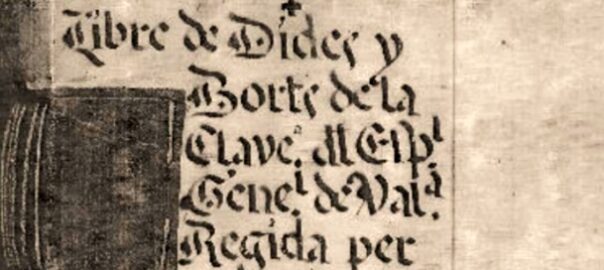 Libre de Dides y
Borts de la
Clave.ª dll Esp.l
Gene.l de Val.a
Regida per